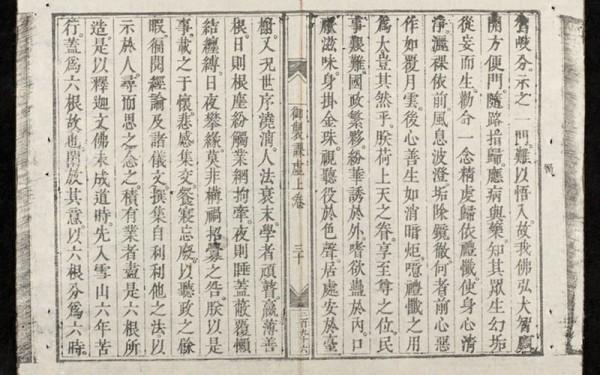 岐分示之一門。難以悟入。故我佛弘大智慶
開方便門。隨路指歸。應病與藥。知其眾生幻垢
從妄而生。勸令一念精虔。歸依禮懺。使身心清
淨。灑裸依前。風息波澄。垢除鏡徹。何者。前心惡
作如覆月雲。後心善生如消暗炬。噫。禮懺之用
為大豈其然乎。朕荷上天之眷。享至尊之位。民
事艱難。國政繁夥。紛華誘於外。嗜欲蠱於內。口
厭滋味。身掛金珠。視聽役於色聲。居處安於臺
御製課虛上卷 三十 三百九十六
榭。又況世序澆漓。人法衰末。學者頑瞽。羸薄善
根。日則根塵紛觸。業網拘牽。夜則睡蓋蔽覆。懶
結纏縛。日夜攀緣。莫非構禍招愆之咎。朕以是
事載之于懷。悲感集交。餐寢忘廢。以聽政之餘
暇。徧閱經論及諸儀文。撰集自利利他之法。以
示於人。尋而思之。念之積有業者。盡是六根所
造。是以釋迦文佛。未成道時。先入雪山。六年苦
行。蓋為六根故也。倣其意。以六根分為六時。